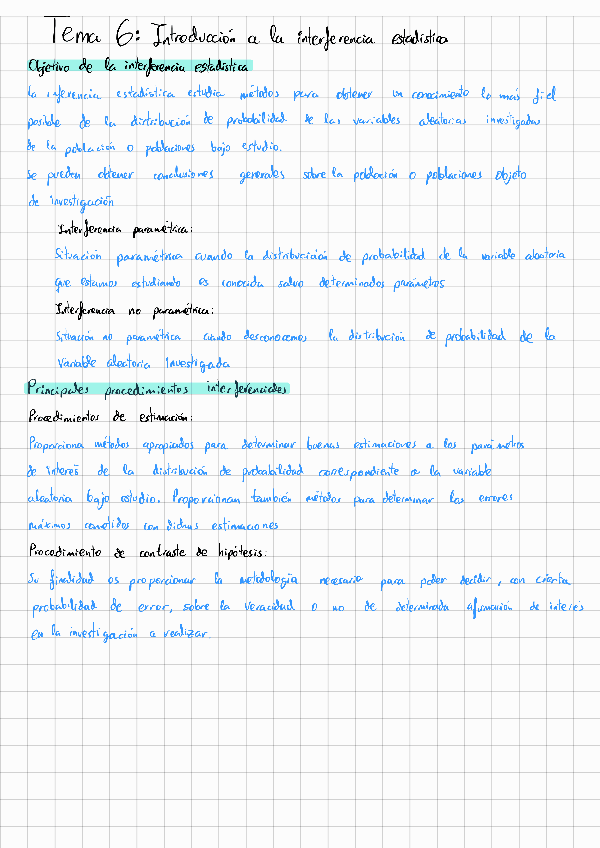 Tema 6: Introducción a la interferencia estadística
Objetivo de la interferencia estadística
La inferencia estadística estudia métodos para obtener un conocimiento lo más fiel
posible de la distribución de probabilidad de las variables aleatorias investigadas
de la población o poblaciones bajo estudio.
Se pueden obtener conclusiones generales sobre la población o poblaciones objeto
de investigación
Interferencia paramétrica:
Situación paramétrica cuando la distribución de probabilidad de la variable aleatoria
que estamos estudiando es conocida salvo determinados parámetros
Interferencia no paramétrica:
Situación no paramétrica cuando desconocemos la distribución de probabilidad de la
variable aleatoria investigada
Principales procedimientos interferenciales
Procedimientos de estimación:
Proporciona métodos apropiados para determinar buenas estimaciones a los parámetros
de interés de la distribución de probabilidad correspondiente a la variable
aleatoria bajo estudio. Proporcionan también métodos para determinar los errores
máximos cometidos con dichas estimaciones
Procedimiento de contraste de hipótesis:
Su finalidad es proporcionar la metodología necesaria para poder decidir, con cierta
probabilidad de error, sobre la veracidad o no de determinada afirmación de interés
en la investigación a realizar.